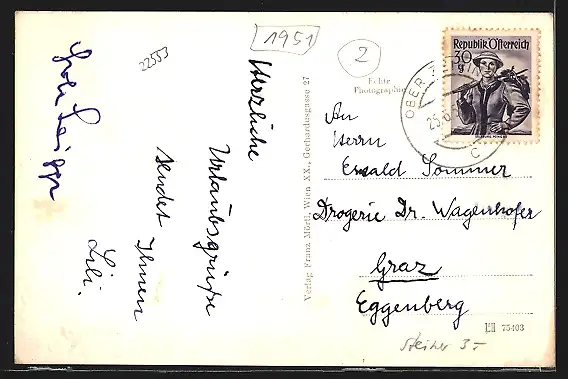 22553
1951
2
Herzliche
Urlaubsgrüße
sendet Ihnen
Lili.
Echte
Photographie
Verlag Franz Mörtl, Wien XX., Gerhardusgasse 27
Republik Österreich
30
g
OBER
25. 6.
C
An
Herrn
Ewald Sommer
Drogerie Dr. Wagenhofer
Graz
Eggenberg
75403
3-